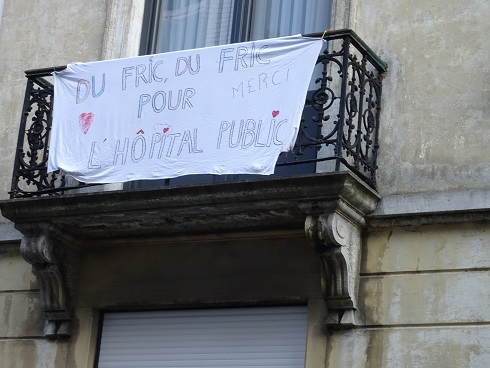 DU FRIC, DU FRIC
POUR MERCI
L'HÔPITAL PUBLIC